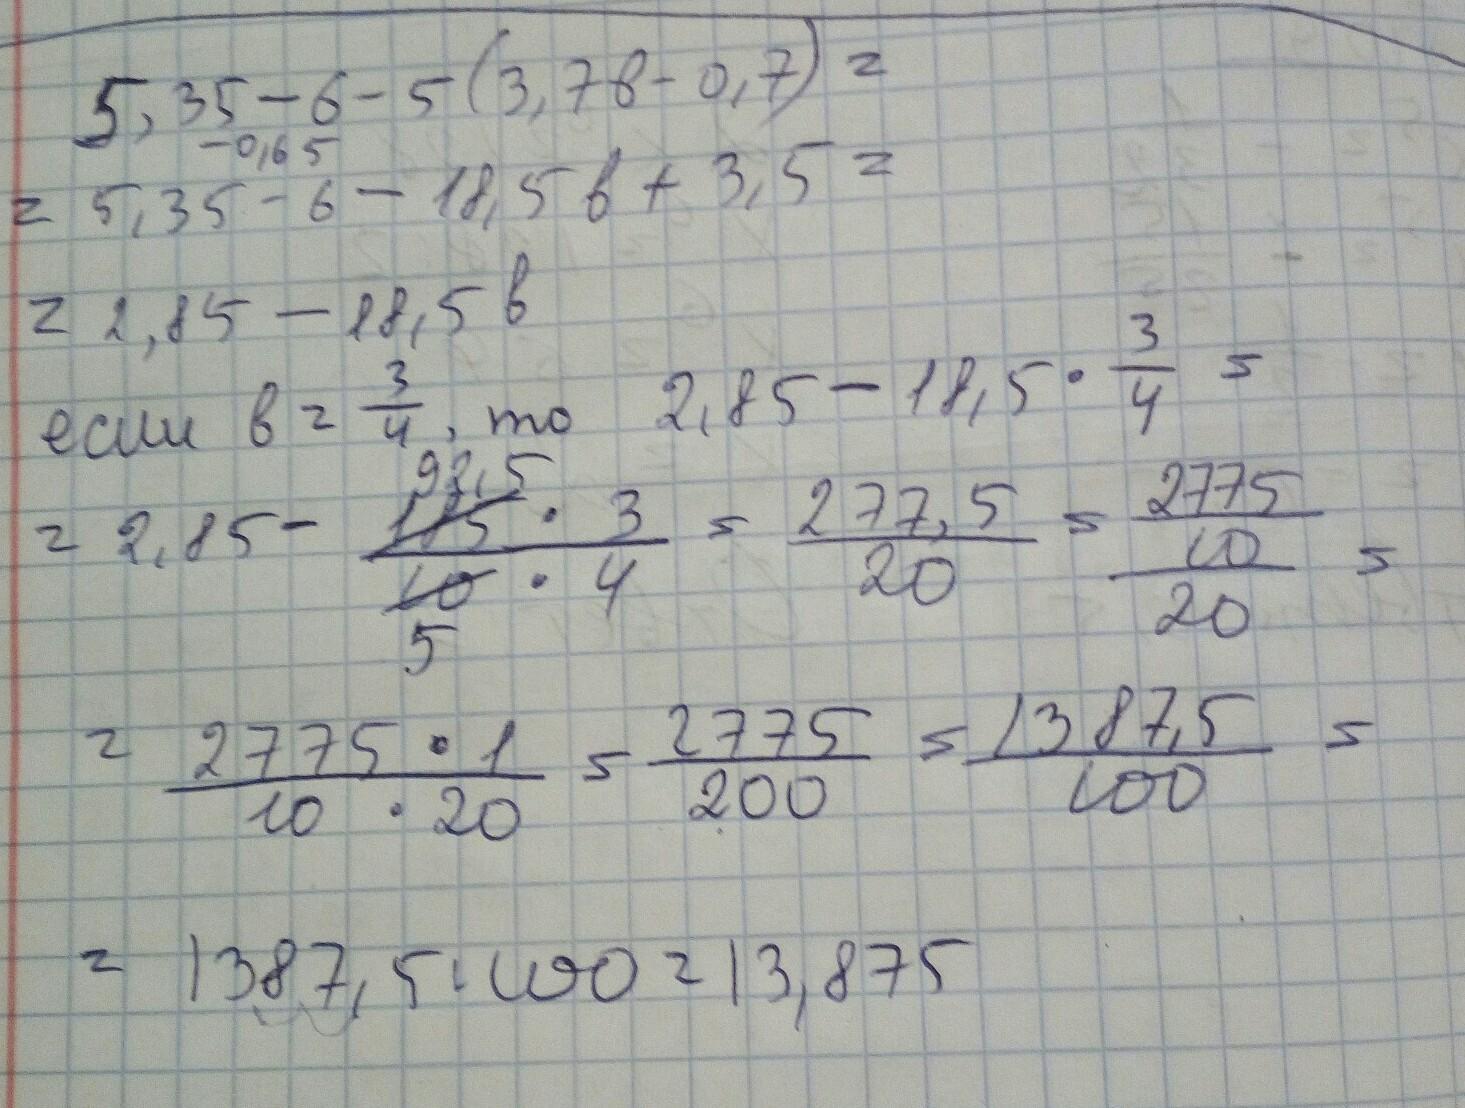 5,35 - 6 - 5(3,7в - 0,7) =
-0,65
= 5,35 - 6 - 18,5в + 3,5 =
= 2,85 - 18,5в
если в = 3/4, то 2,85 - 18,5 · 3/4 =
= 2,85 - (185 92,5 · 3)/(10 5 · 4) = 277,5/20 = (2775/10)/20 =
= (2775 · 1)/(10 · 20) = 2775/200 = 1387,5/100 =
= 1387,5 : 100 = 13,875